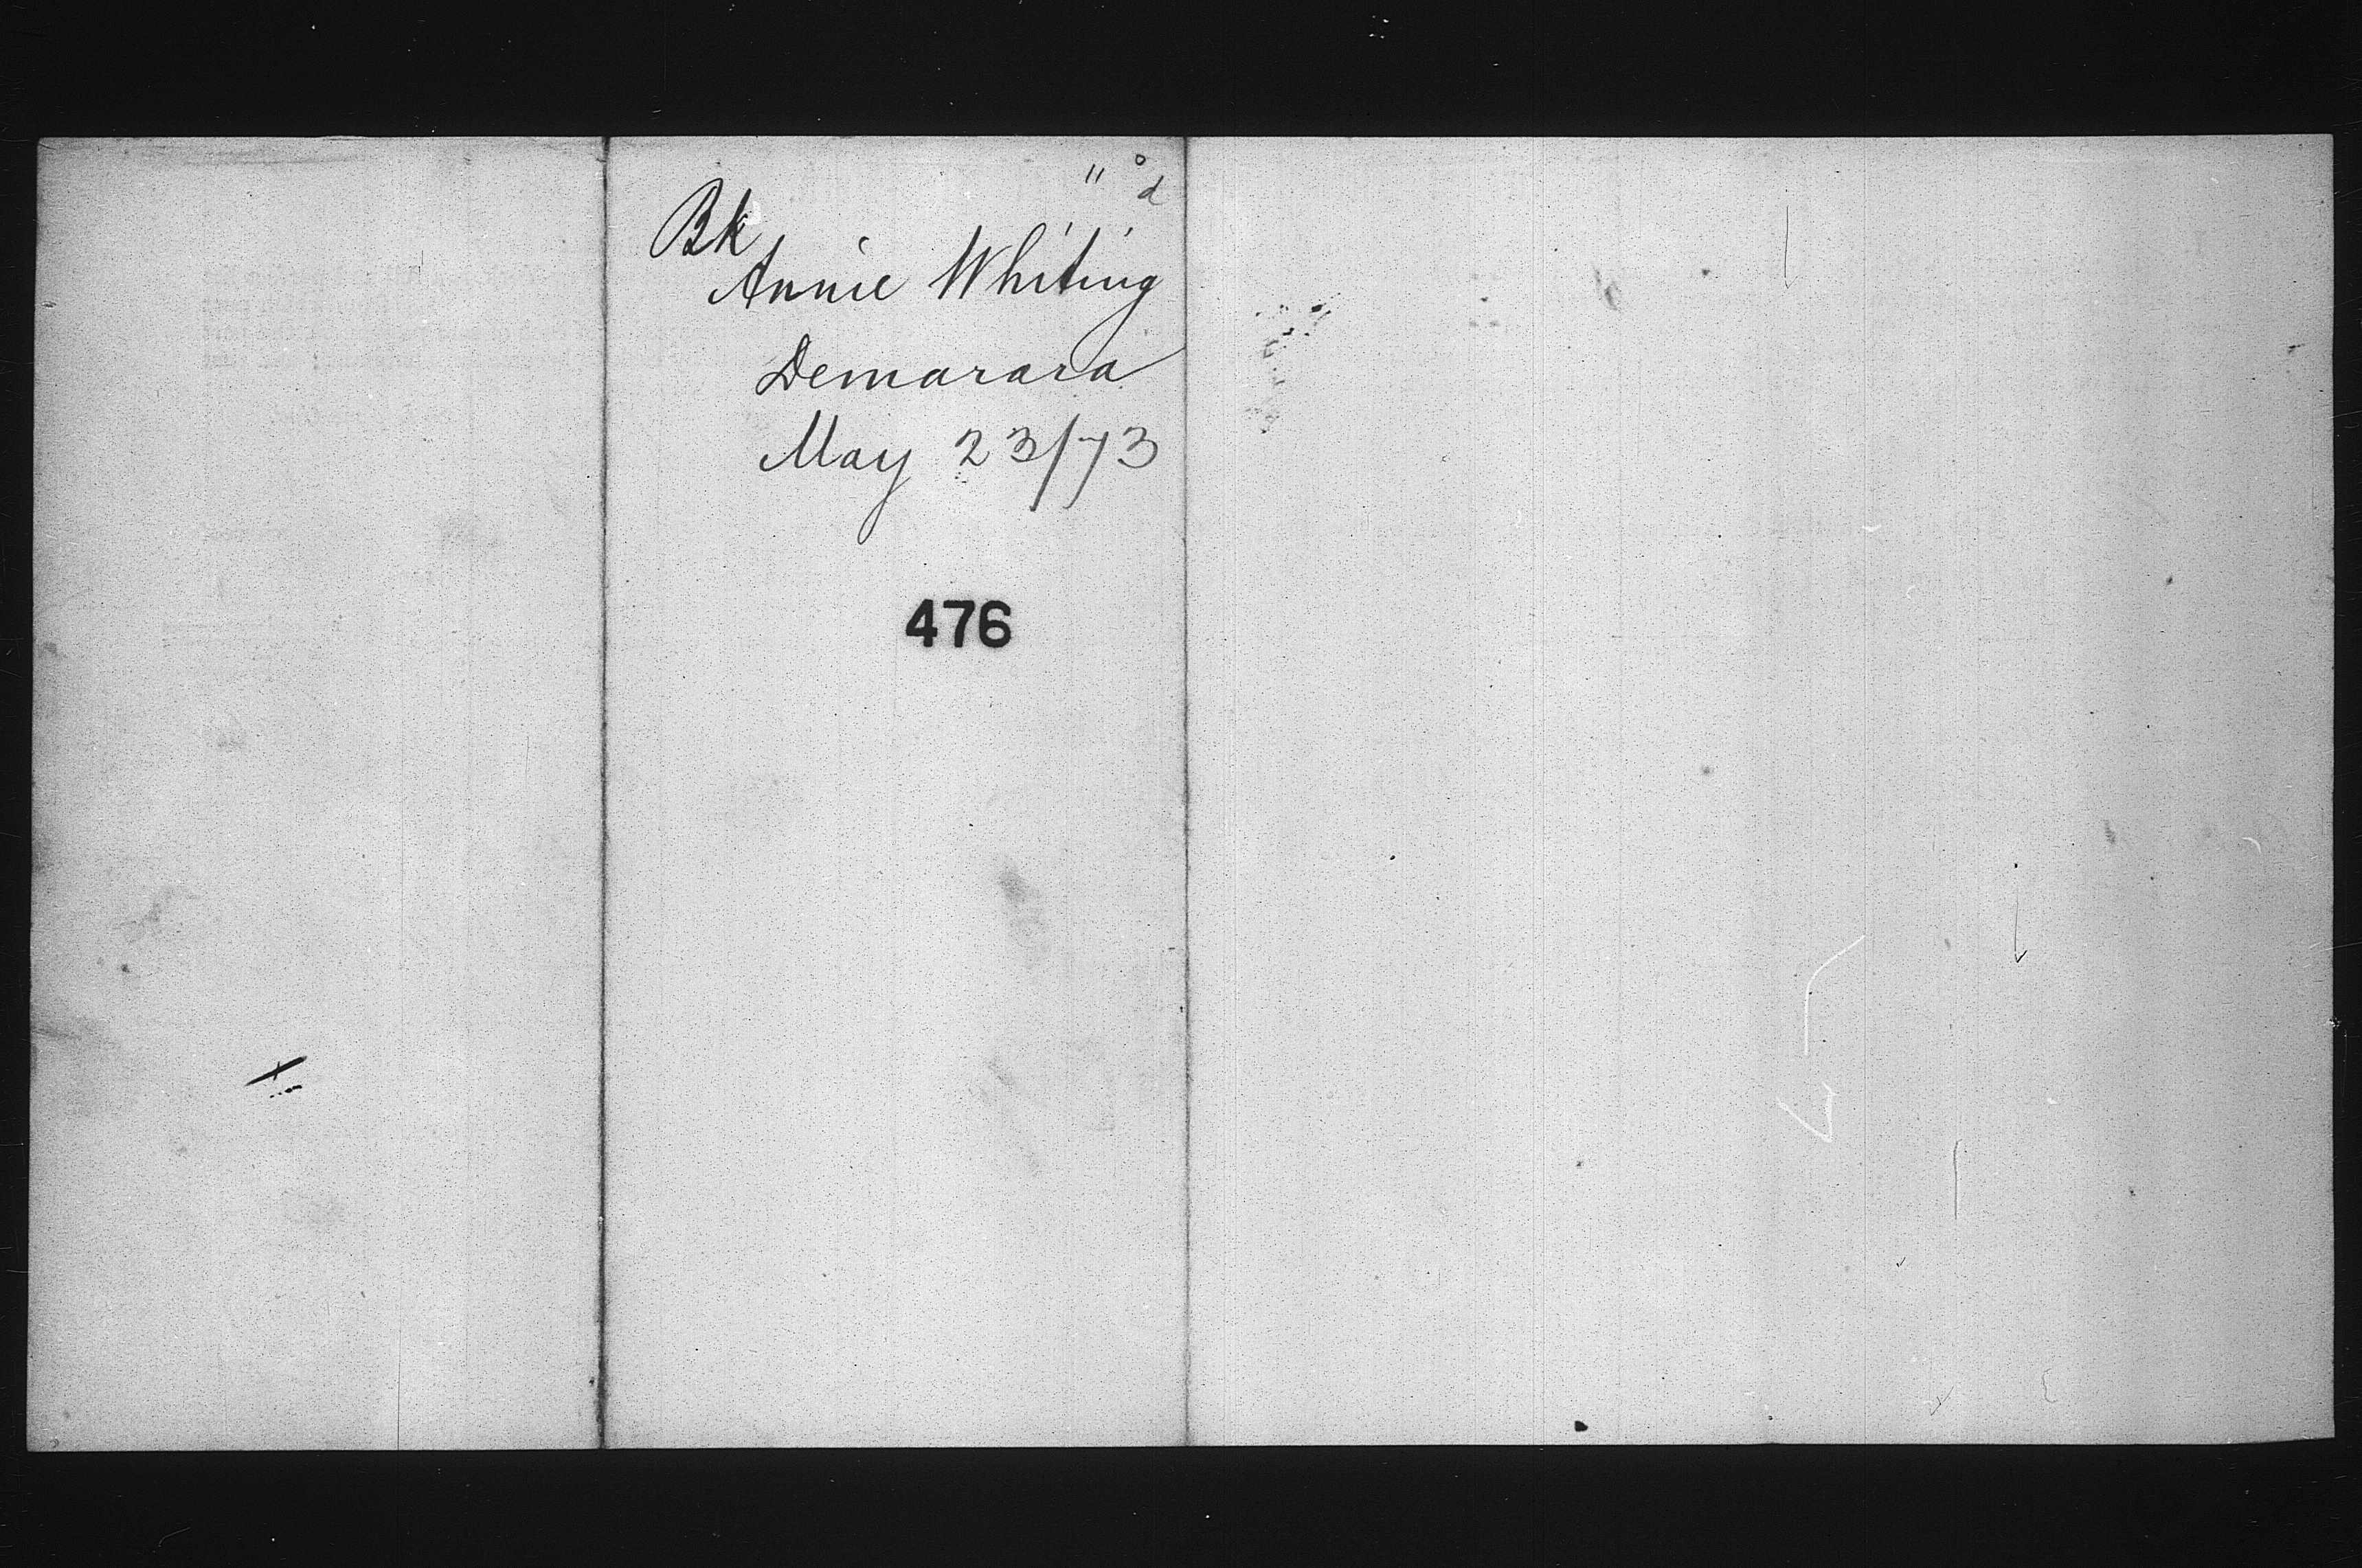 Bk
Annie Whiting
Demarara
May 23/73
476